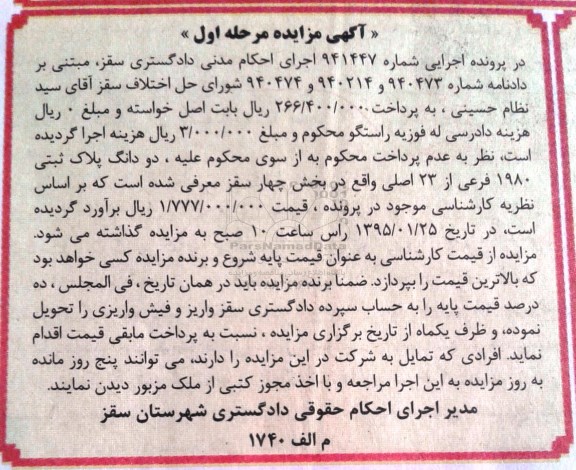 « آگهی مزایده مرحله اول »
در پرونده اجرایی شماره ۹۴۱۴۴۷ اجرای احکام مدنی دادگستری سقز، مبتنی بر
دادنامه شماره ۹۴۰۴۷۳ و ۹۴۰۲۱۴ و ۹۴۰۴۷۴ شورای حل اختلاف سقز آقای سید
نظام حسینی ، به پرداخت ۲۶۶/۴۰۰/۰۰۰ ریال بابت اصل خواسته و مبلغ ۰ ریال
هزینه دادرسی له فوزیه راستگو محکوم و مبلغ ۳/۰۰۰/۰۰۰ ریال هزینه اجرا گردیده
است، نظر به عدم پرداخت محکوم به از سوی محکوم علیه ، دو دانگ پلاک ثبتی
۱۹۸۰ فرعی از ۲۳ اصلی واقع در بخش چهار سقز معرفی شده است که بر اساس
نظریه کارشناسی موجود در پرونده ، قیمت ۱/۷۷۷/۰۰۰/۰۰۰ ریال برآورد گردیده
است، در تاریخ ۱۳۹۵/۰۱/۲۵ رأس ساعت ۱۰ صبح به مزایده گذاشته می شود.
مزایده از قیمت کارشناسی به عنوان قیمت پایه شروع و برنده مزایده کسی خواهد بود
که بالاترین قیمت را بپردازد. ضمنا برنده مزایده باید در همان تاریخ ، فی المجلس ، ده
درصد قیمت پایه را به حساب سپرده دادگستری سقز واریز و فیش واریزی را تحویل
نموده، و ظرف یکماه از تاریخ برگزاری مزایده ، نسبت به پرداخت مابقی قیمت اقدام
نماید. افرادی که تمایل به شرکت در این مزایده را دارند، می توانند پنج روز مانده
به روز مزایده به این اجرا مراجعه و با اخذ مجوز کتبی از ملک مزبور دیدن نمایند.
مدیر اجرای احکام حقوقی دادگستری شهرستان سقز
م الف ۱۷۴۰
ParsNamadData